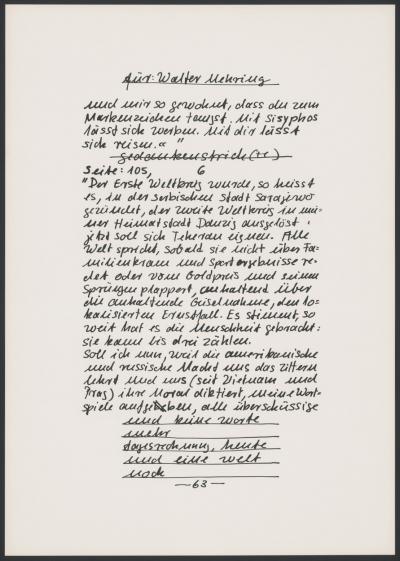 für: Walter Mehring
und mir so gewohnt, dass du zum
Markenzeichen taugst. Mit Sisyphos
lässt sich werben. Mit dir lässt
sich reisen.« "
gedankenstrich(re)
Seite: 105, 6
"Der Erste Weltkrieg wurde, so heisst
es, in der serbischen Stadt Sarajewo
gezündet, der zweite Weltkrieg in mei-
ner Heimatstadt Danzig ausgelöst.
jetzt soll sich Teheran eignen. Alle
Welt spricht, sobald sie nicht über Fa-
milienkram und Sportergebnisse re-
det oder vom Goldpreis und seinen
Sprüngen plappert, anhaltend über
die anhaltende Geiselnahme, den lo-
kalisierten Ernstfall. Es stimmt, so
weit hat es die Menschheit gebracht:
sie kann bis drei zählen.
Soll ich nun, weil die amerikanische
und russische Macht uns das Zittern
lehrt und uns (seit Vietnam und
Prag) ihre Moral diktiert, meine Wort-
spiele aufgeben, alle überschüssige
und keine worte
mehr
tagesrechnung, heute
und eine welt
noch
—63—